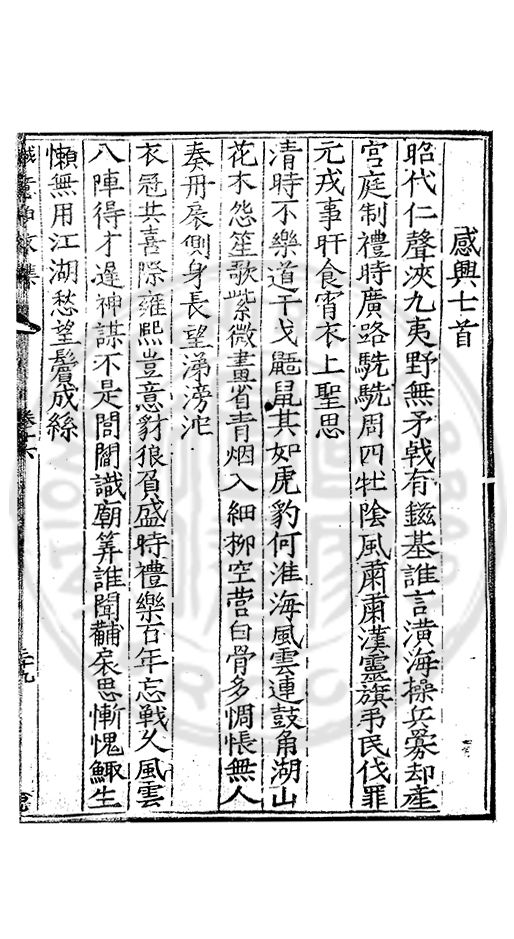 感興七首
昭代仁聲浹九夷野無矛戟有鎡基誰言潢海操兵爨却產
宮庭制禮時廣路駪駪周四牡陰風肅肅漢靈旗弔民伐罪
元戎事旰食宵衣上聖思
清時不樂道干戈鼯鼠其如虎豹何淮海風雲連鼓角湖山
花木怨笙歌紫微畫省青烟入細柳空營白骨多惆悵無人
奏丹扆側身長望涕滂沱
衣冠共喜際雍熙豈意豺狼負盛時禮樂百年忘戰久風雲
八陣得才遲神謀不是閭閻識廟筭誰聞黼扆思慚愧鯫生
懶無用江湖愁望鬢成絲
誠意伯文集 卷十六